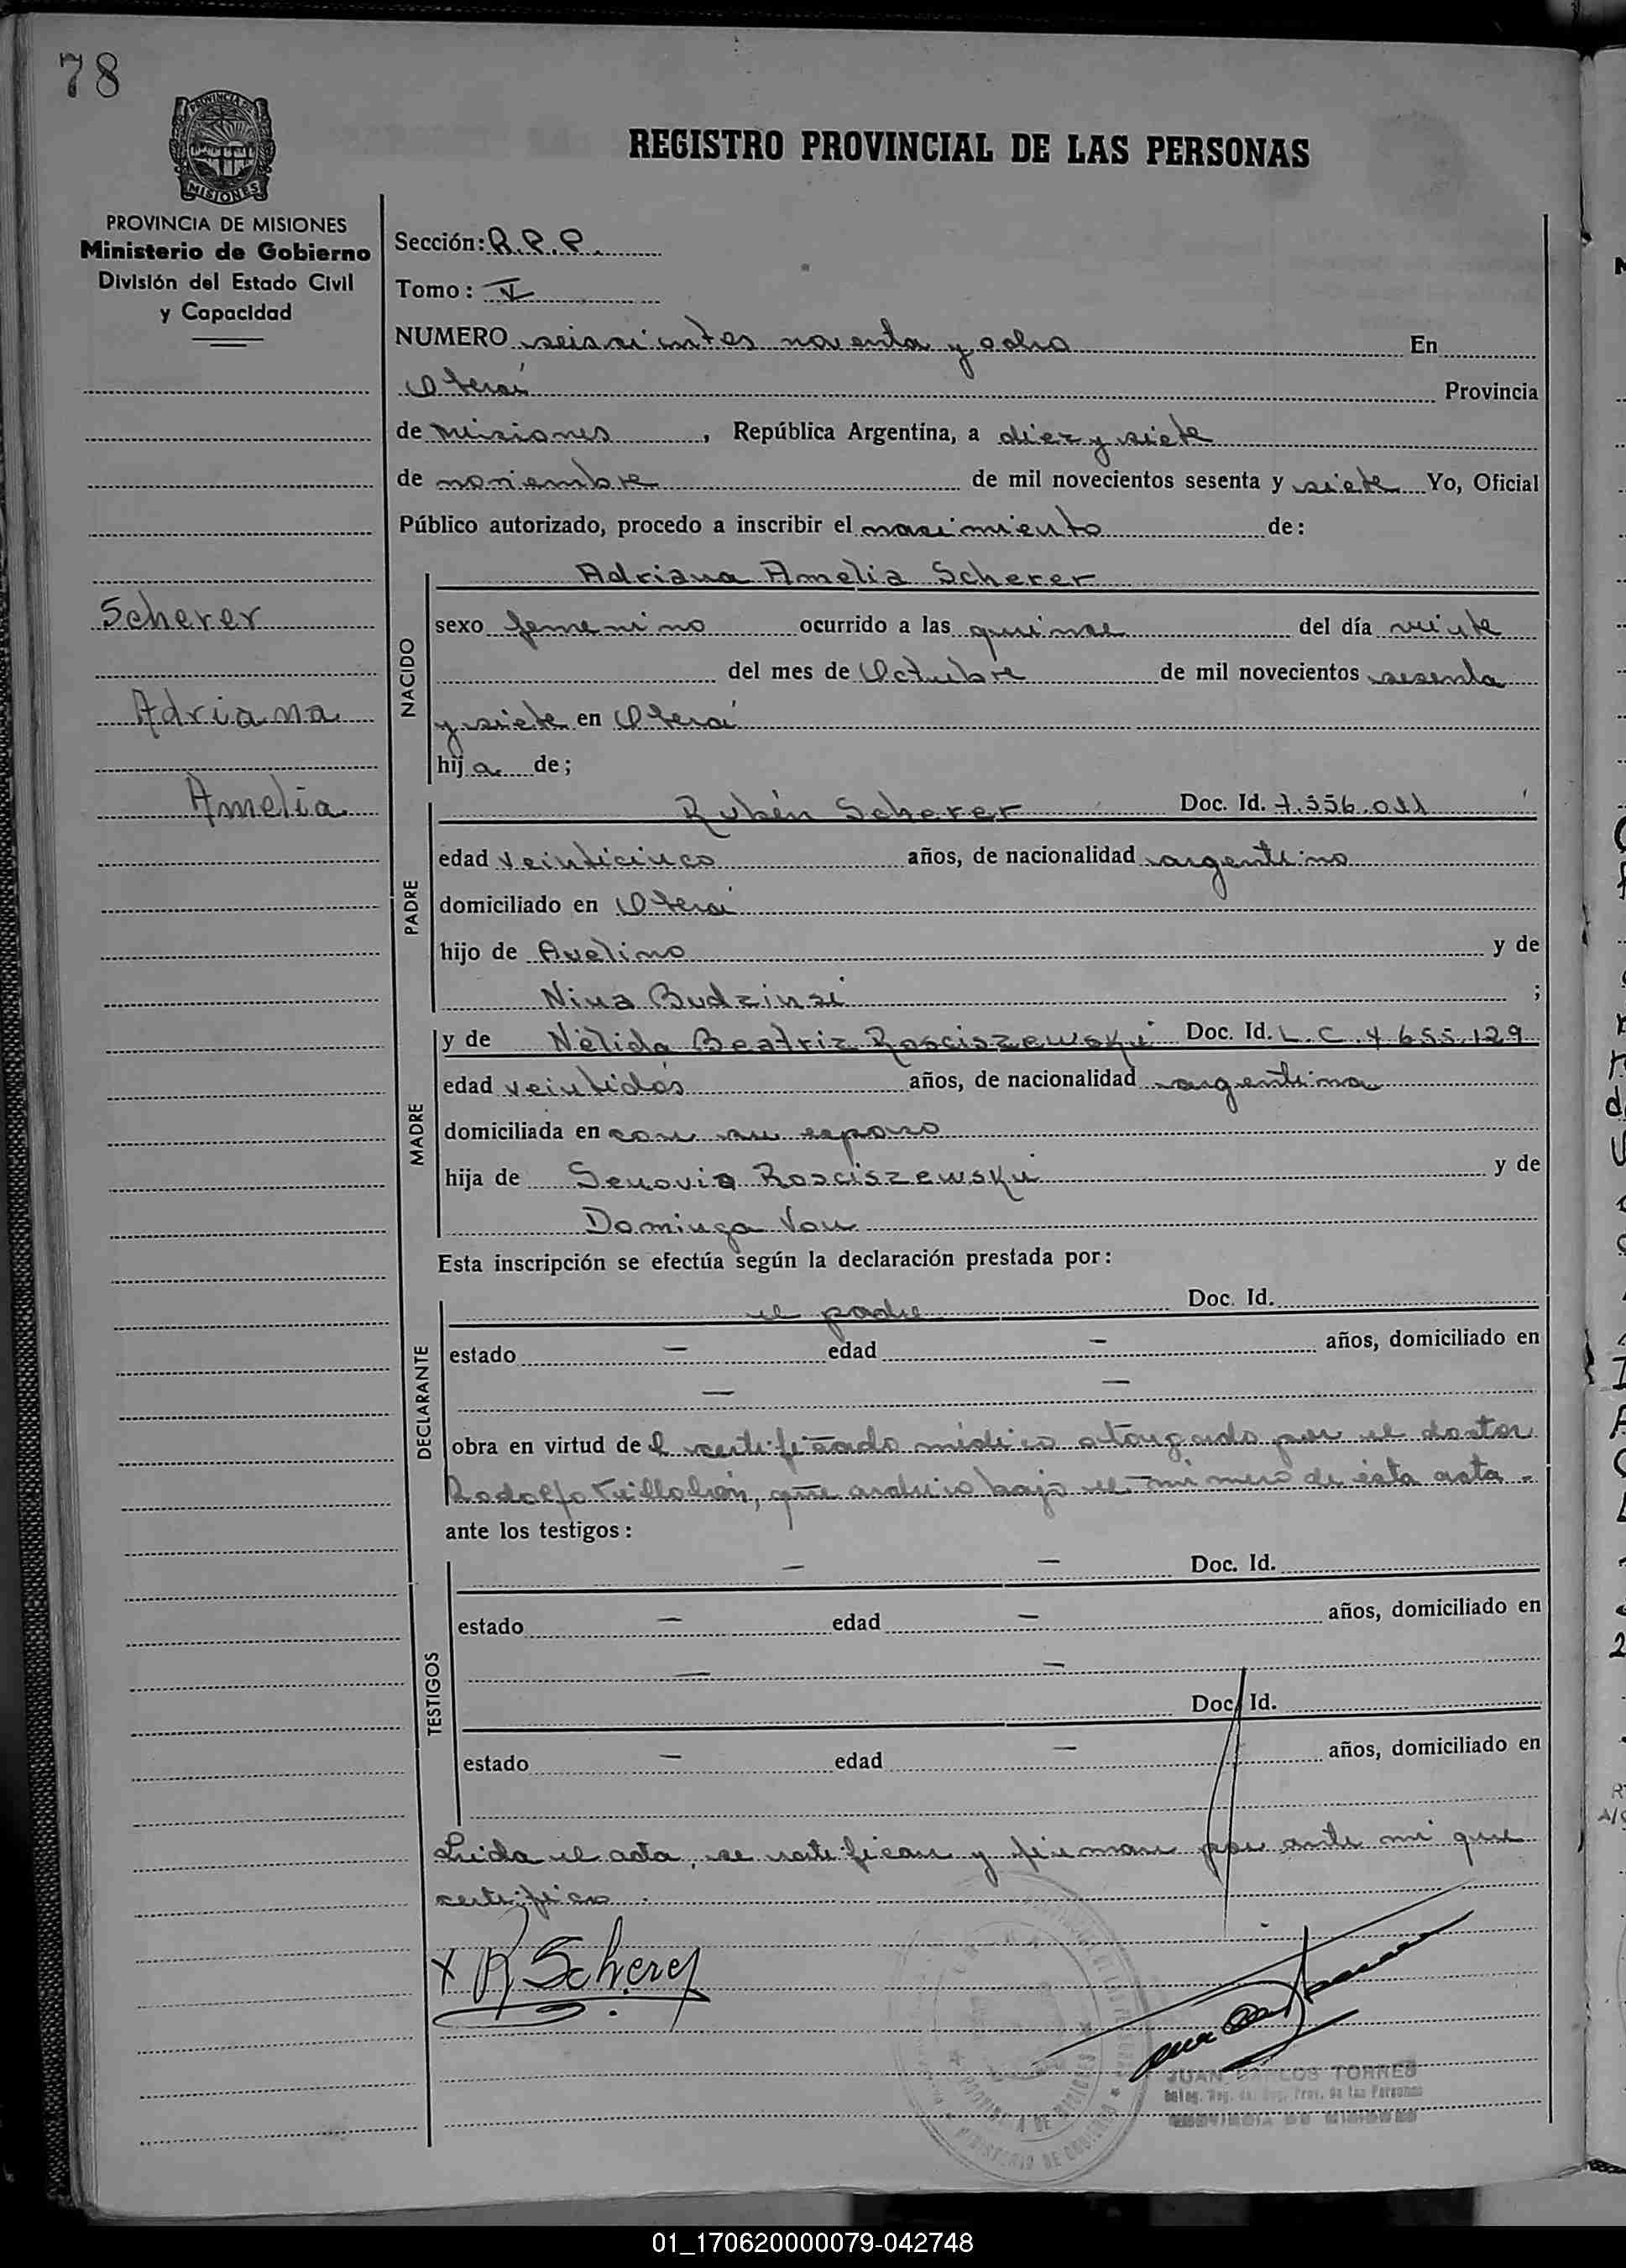 78
PROVINCIA DE
MISIONES
REGISTRO PROVINCIAL DE LAS PERSONAS
PROVINCIA DE MISIONES
Ministerio de Gobierno
División del Estado Civil
y Capacidad
Sección: R.P.P.
Tomo: V
NUMERO seiscientos noventa y ocho En
Oberá Provincia
de Misiones, República Argentina, a diez y siete
de noviembre de mil novecientos sesenta y siete Yo, Oficial
Público autorizado, procedo a inscribir el nacimiento de:
Adriana Amelia Scherer
Scherer
Adriana
Amelia
NACIDO
sexo femenino ocurrido a las quince del día veinte
del mes de Octubre de mil novecientos sesenta
y siete en Oberá
hija de;
PADRE
Rubén Scherer Doc. Id. 7.556.011
edad veinticinco años, de nacionalidad argentino
domiciliado en Oberá
hijo de Avelino y de
Nina Budzinsi ;
MADRE
y de Nélida Beatriz Rosciszewski Doc. Id. L.C. 4 655.129
edad veintidós años, de nacionalidad argentina
domiciliada en con su esposo
hija de Senovio Rosciszewski y de
Dominga Vou
Esta inscripción se efectúa según la declaración prestada por:
DECLARANTE
el padre Doc. Id.
estado — edad — años, domiciliado en
— —
obra en virtud del certificado médico otorgado por el doctor
Rodolfo, que archivo bajo el número de ésta acta.-
ante los testigos:
TESTIGOS
— — Doc. Id.
estado — edad — años, domiciliado en
— —
Doc. Id.
estado — edad — años, domiciliado en
Leída el acta, se ratifican y firman por ante mí que
certifico.
x R Scherer
JUAN CARLOS TORRES
Prov. de las Personas
PROVINCIA DE MISIONES
MINISTERIO DE GOBIERNO
01_170620000079-042748